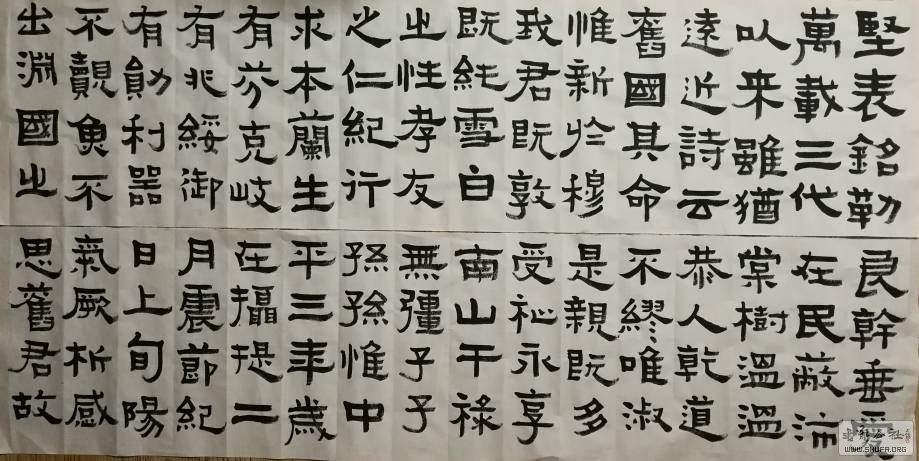 堅表銘勒
萬載三代
以来雖猶
遠近詩云
舊國其命
惟新於穆
我君既敦
既純雪白
之性孝友
之仁紀行
求本蘭生
有芬克岐
有兆綏御
有勛利器
不覿魚不
出淵國之
良幹垂愛
在民蔽沛
棠樹温温
恭人乾道
不繆唯淑
是親既多
受祉永享
南山干祿
無彊子子
孫孫惟中
平三年歲
在攝提二
月震節紀
日上旬陽
氣厥析感
思舊君故
WWW.SHUFA.ORG